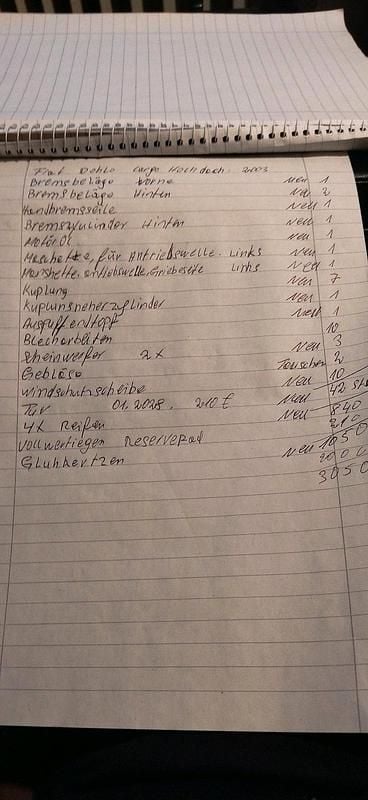 Fiat Doblo Cargo Hochdach. 2003
Bremsbeläge Vorne Neu 1
Bremsbeläge Hinten Neu 2
Handbremsseile Neu 1
Bremszylinder Hinten Neu 1
Motoröl Neu 1
Manschette, für Antriebswelle. Links Neu 1
Manshette. antriebswelle. Links Neu 1
Kuplung Neu 7
Kuplunsneherzylinder Neu 1
Auspuffendtopf Neu 1
Blecharbeiten 10
Scheinwerfer 2x Neu 3
Gebläse Tauschen 2
Windschutzscheibe Neu 10
Tüv 01.2028. 210 € 42 St
4x Reifen Neu 840
Vollwertiegen Reserverad Neu 210
Gluhkertzen Neu 1050
2000
3050